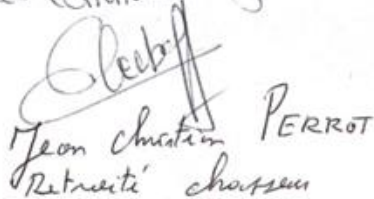 Jean Christian PERROT
Retraité chasseur